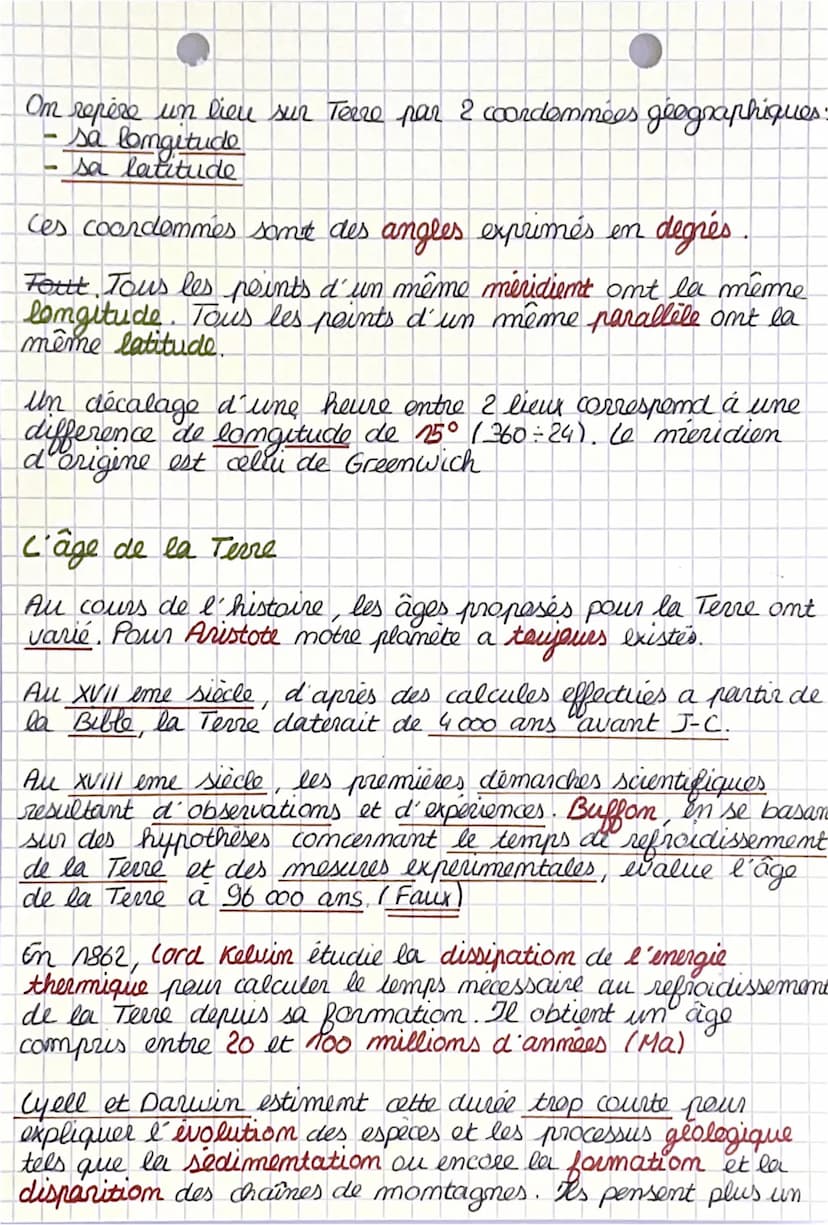 On repère un lieu sur Terre par 2 coordonnées géographiques :
- sa longitude
- sa latitude
Ces coordonnnés sont des angles exprimés en degrés.
Tout. Tous les points d'un même méridient ont la même
longitude. Tous les points d'un même parallèle ont la
même latitude.
Un décalage d'une heure entre 2 lieux correspond à une
difference de longitude de 15° (360÷24). Le mieridien
d'origine est cellui de Greenwich
L'âge de la Terre
Au cours de l'histoire, les âges proposés pour la Terre ont
varié. Pour Aristote notre planète a toujours existés.
Au XVII eme siècle, d'après des calcules effectués a partir de
la Bible, la Terre daterait de 4 000 ans avant J-C.
Au XVIII eme siècle, les premières démarches scientifiques
resultant d'observations et d'expériences. Buffon, en se basan
sur des hypothèses concernant le temps de refroidissement
de la Terre et des mesures experimentales, évalue l'âge
de la Terre à 96 000 ans. (Faux)
En 1862, Lord Kelvin étudie la dissipation de l'énergie
thermique pour calculer le temps nécessaire au refroidissement
de la Terre depuis sa formation. Il obtient un âge
compris entre 20 et 100 millions d'années (Ma)
Lyell et Darwin estiment cette durée trop courte pour
expliquer l'évolution des espèces et les processus géologique
tels que la sédimentation ou encore la formation et la
disparition des chaînes de montagnes. Ils pensent plus un